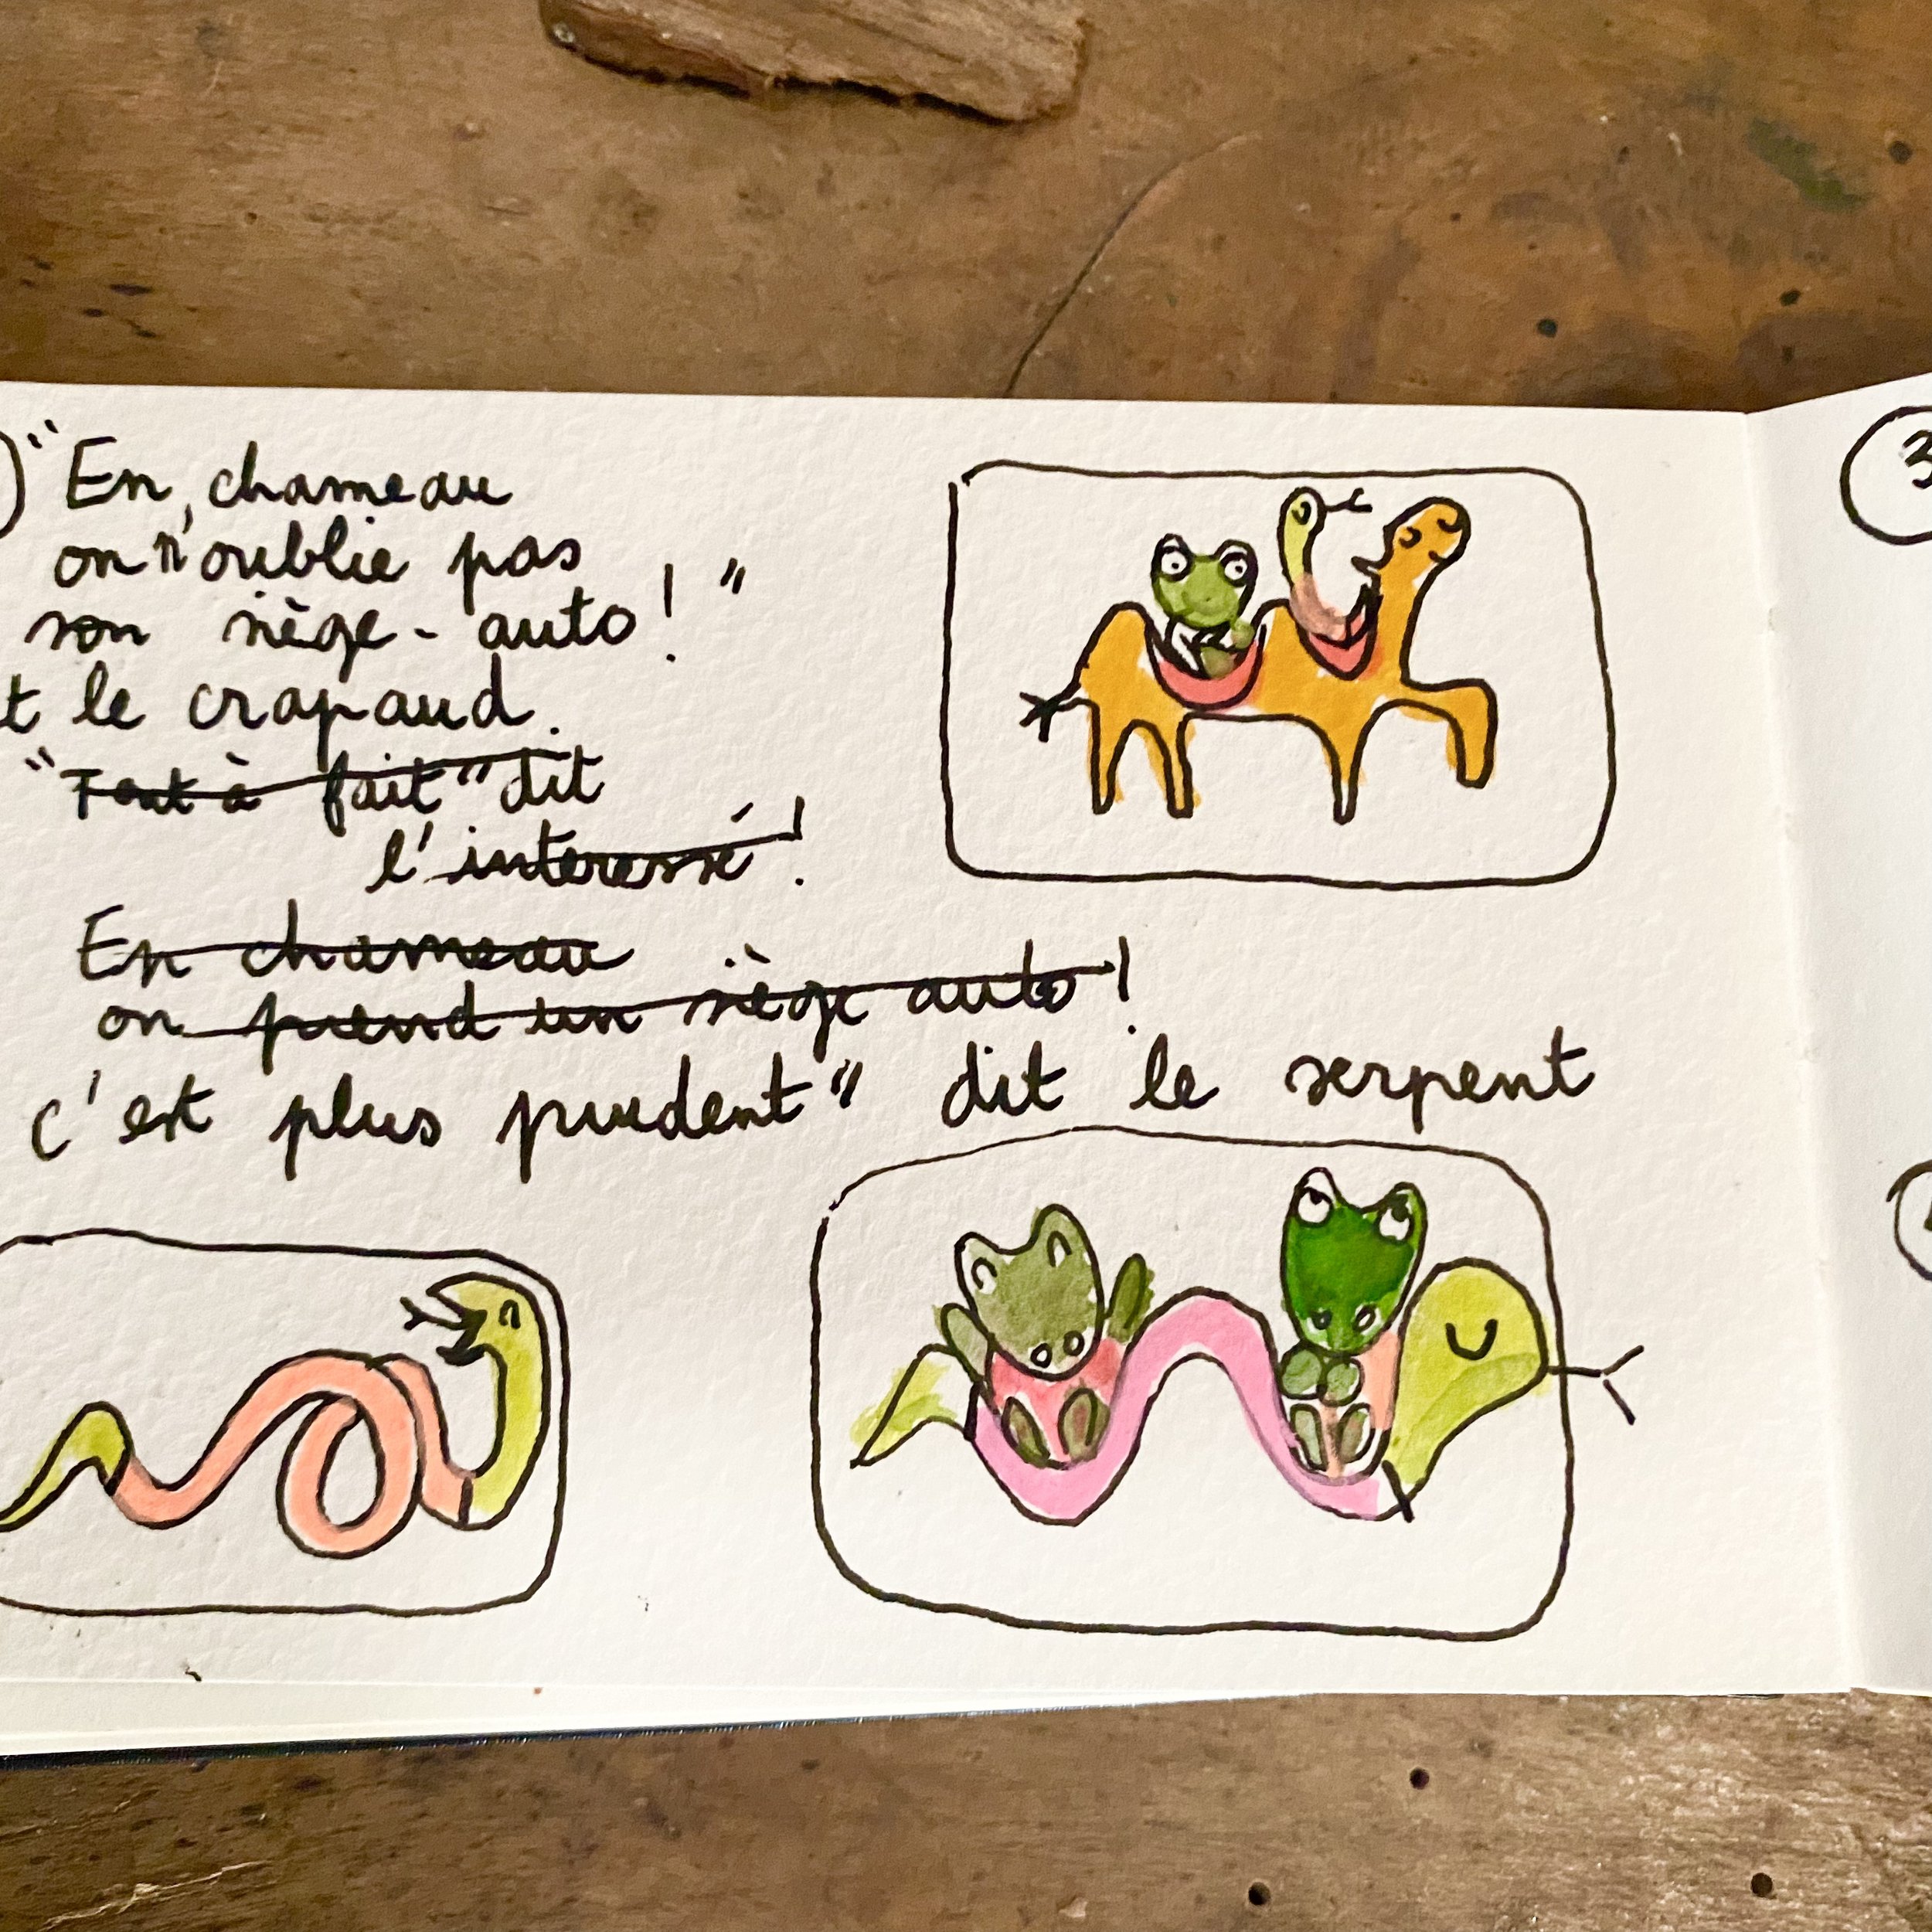 "En chameau
on n'oublie pas
son siège-auto!"
t le crapaud.
"Tout à fait" dit
l'interessé!
En chameau
on prend un siège auto!
c'est plus prudent" dit le serpent
3